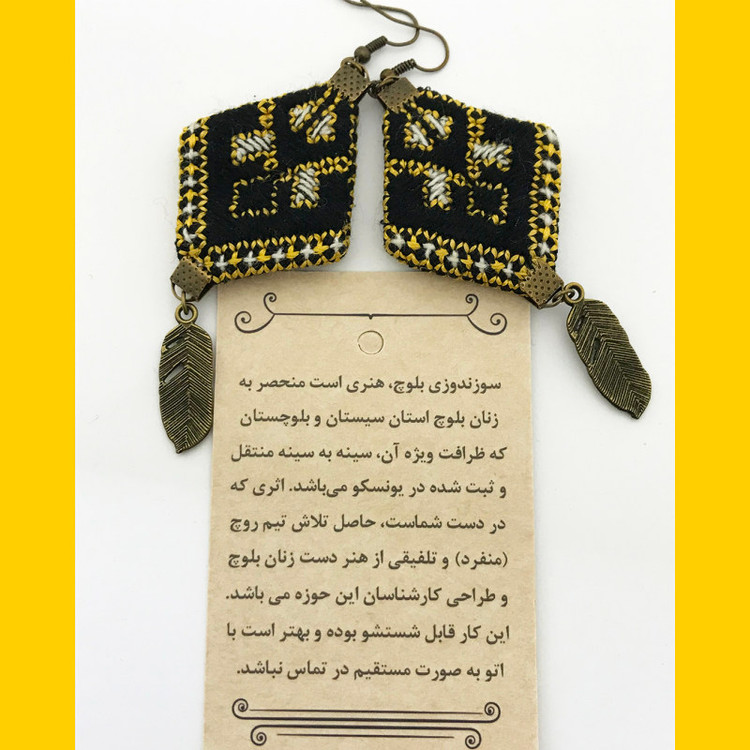 سوزندوزی بلوچ، هنری است منحصر به
زنان بلوچ استان سیستان و بلوچستان
که ظرافت ویژه آن، سینه به سینه منتقل
و ثبت شده در یونسکو می‌باشد. اثری که
در دست شماست، حاصل تلاش تیم روچ
(منفرد) و تلفیقی از هنر دست زنان بلوچ
و طراحی کارشناسان این حوزه می باشد.
این کار قابل شستشو بوده و بهتر است با
اتو به صورت مستقیم در تماس نباشد.